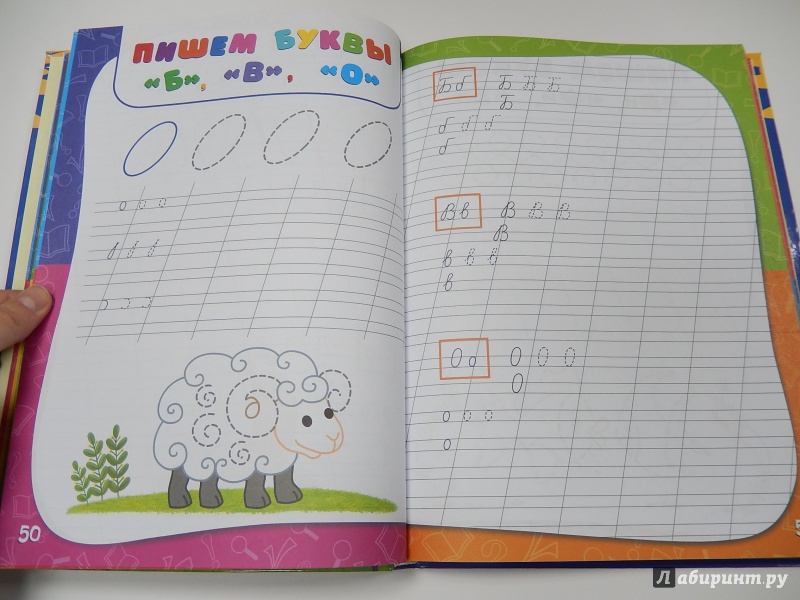 ПИШЕМ БУКВЫ
«Б», «В», «О»
о о о
в в в
50
Бб Б Б Б
Б
б б б
б
Вв В В В
В
в в в
в
Оо О О О
О
о о о
о
Лабиринт.ру